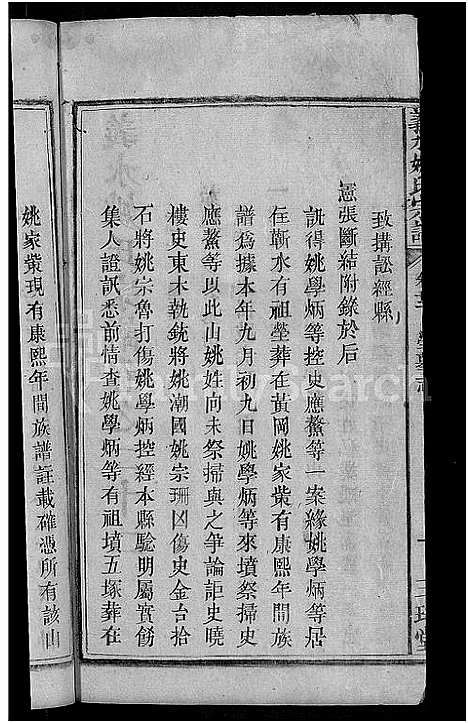 致搆訟經縣
憲張斷結附錄於后
訊得姚學炳等控史應鰲等一案緣姚學炳等居
在蘄水有祖塋葬在黃岡姚家業有康熙年間族
譜爲據本年九月初九日姚學炳等來墳祭掃史
應鰲等以此山姚姓向未祭掃與之爭論詎史曉
樓史東木執銃將姚潮國姚宗珊凶傷史金台拾
石將姚宗魯打傷姚學炳控經本縣騐明屬實餝
集人證訊悉前情查姚學炳等有祖墳五塚葬在
姚家業現有康熙年間族譜註載確憑所有該山